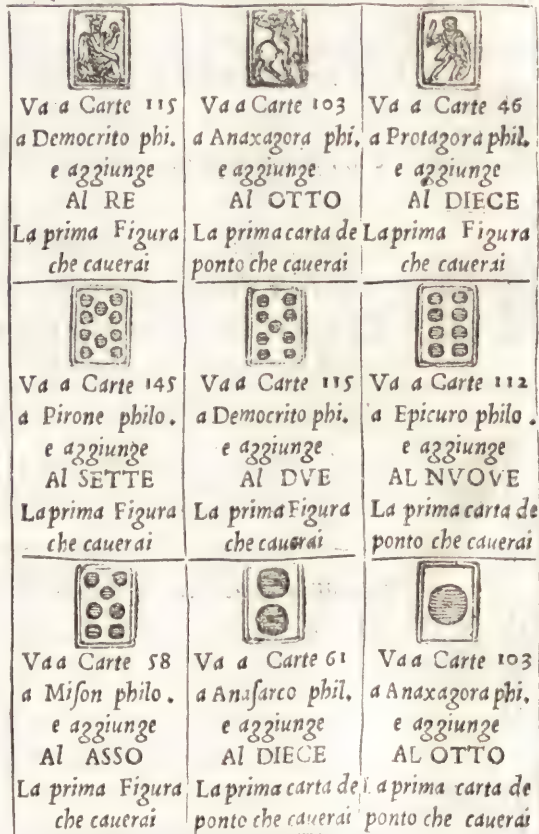 Va a Carte 115
a Democrito phi.
e aggiunge
Al RE
La prima Figura
che cauerai
Va a Carte 103
a Anaxagora phi.
e aggiunge
Al OTTO
La prima carta de
ponto che cauerai
Va a Carte 46
a Protagora phil.
e aggiunge
Al DIECE
La prima Figura
che cauerai
Va a Carte 145
a Pirone philo.
e aggiunge
Al SETTE
La prima Figura
che cauerai
Va a Carte 115
a Democrito phi.
e aggiunge
Al DVE
La prima Figura
che cauerai
Va a Carte 112
a Epicuro philo.
e aggiunge
AL NVOVE
La prima carta de
ponto che cauerai
Va a Carte 58
a Miſon philo.
e aggiunge
Al ASSO
La prima Figura
che cauerai
Va a Carte 61
a Anaſarco phil.
e aggiunge
Al DIECE
La prima carta de
ponto che cauerai
Va a Carte 103
a Anaxagora phi.
e aggiunge
AL OTTO
La prima carta de
ponto che cauerai